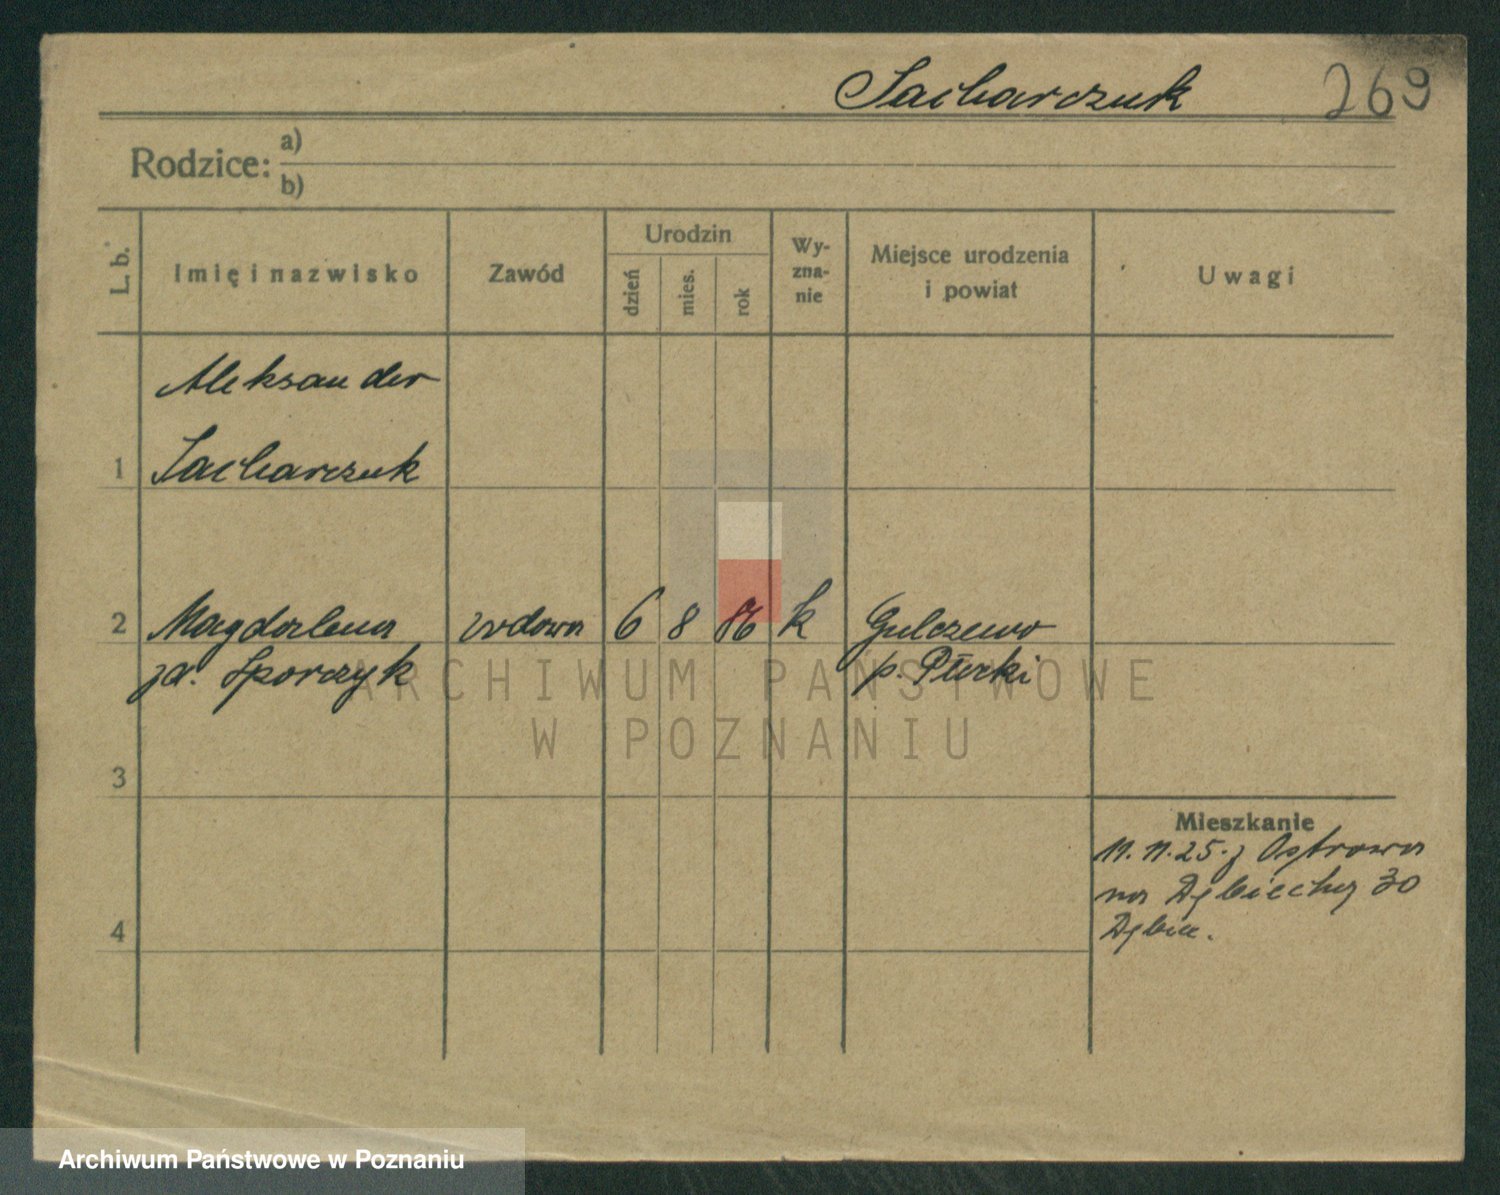 Sacharczuk 269
Rodzice: a)
b)
L. b. Imię i nazwisko Zawód Urodzin dzień mies. rok Wy-
zna-
nie Miejsce urodzenia
i powiat Uwagi
Aleksander
1 Sacharczuk
2 Magdalena wdowa 6 8 86 k Gulczewo
zd. Sporczyk p. Płocki
ARCHIWUM PAŃSTWOWE
W POZNANIU
3
Mieszkanie
11. 11. 25. z Ostrowa
na Dębiechą 30
4 Dębiec.
Archiwum Państwowe w Poznaniu